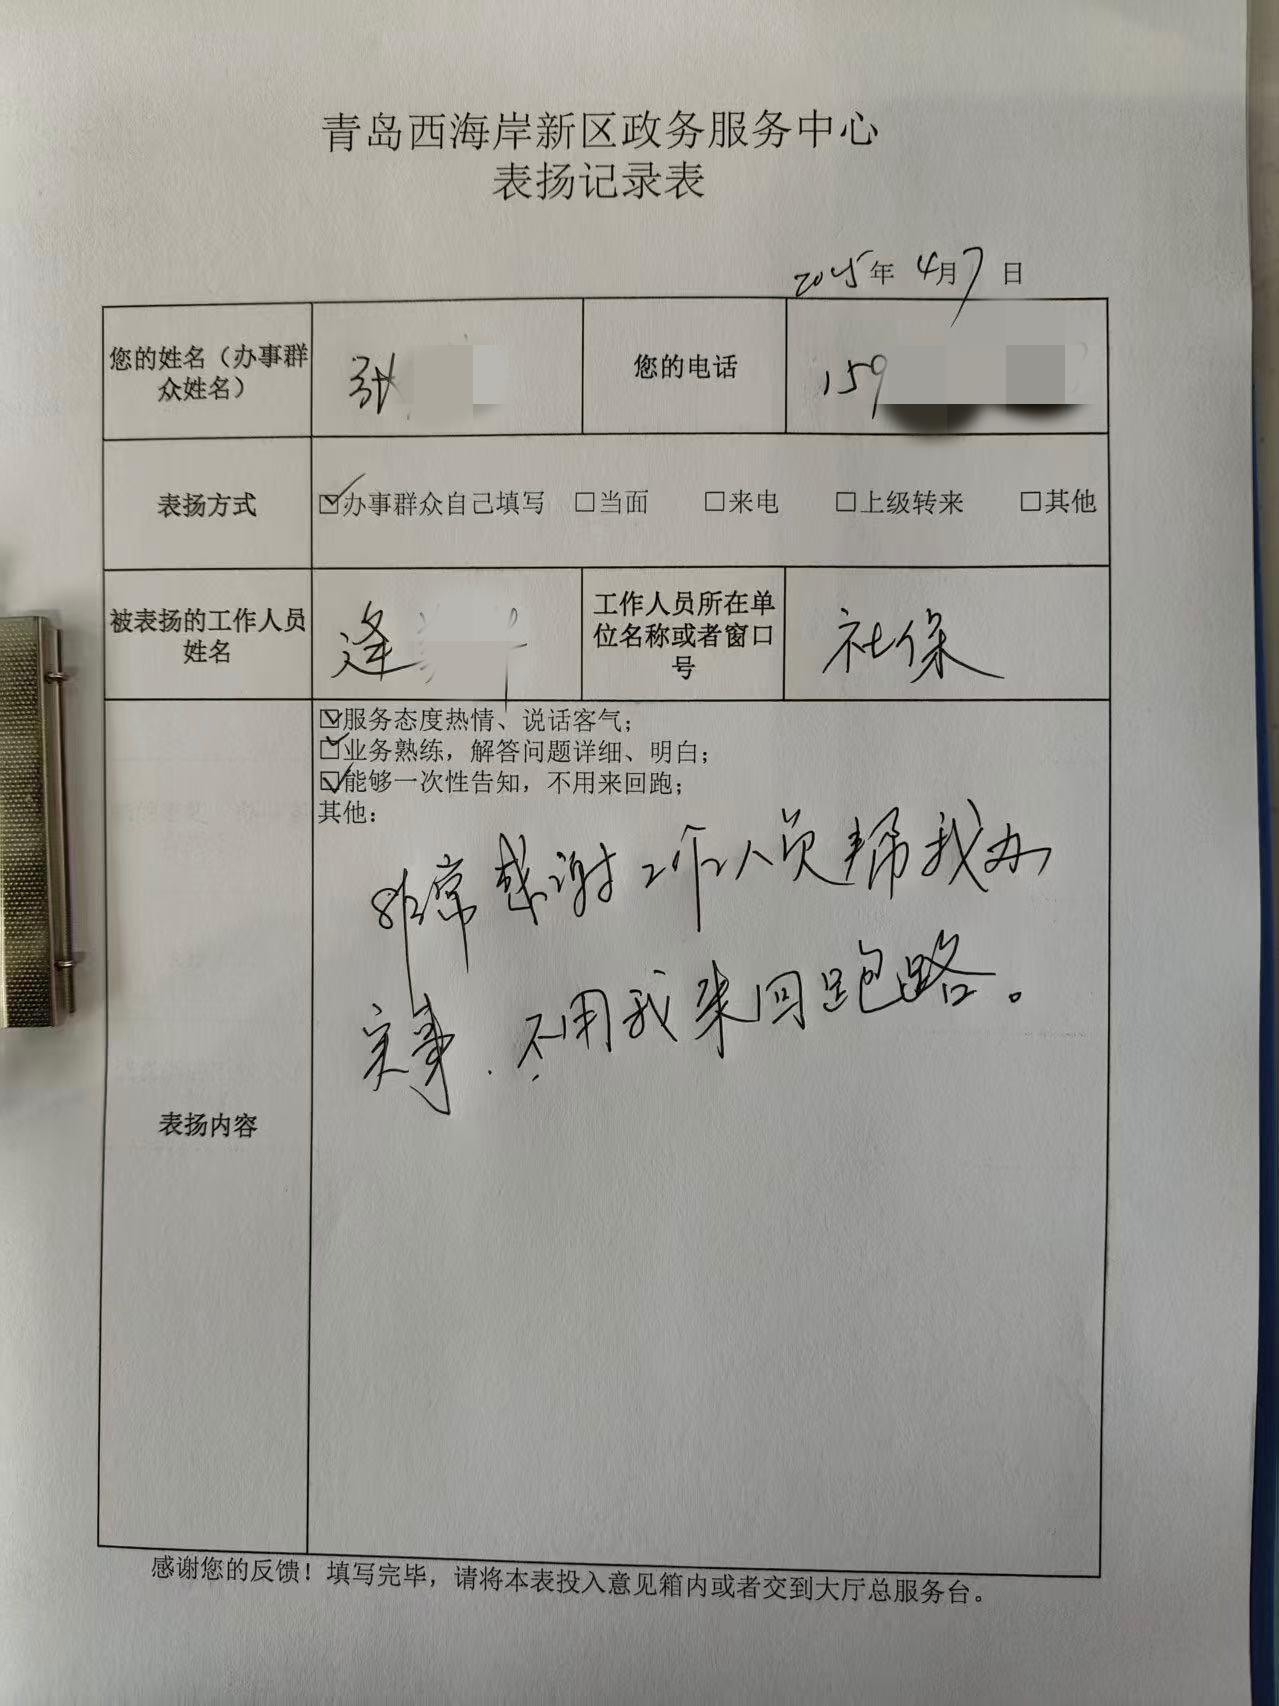 青岛西海岸新区政务服务中心
表扬记录表
2025年 4月7日
您的姓名（办事群
众姓名）
张
您的电话
159
表扬方式
☑办事群众自己填写 □当面 □来电 □上级转来 □其他
被表扬的工作人员
姓名
逄
工作人员所在单
位名称或者窗口
号
社保
表扬内容
☑服务态度热情、说话客气；
☑业务熟练，解答问题详细、明白；
☑能够一次性告知，不用来回跑；
其他：
非常感谢工作人员帮我办
实事，不用我来回跑路。
感谢您的反馈！填写完毕，请将本表投入意见箱内或者交到大厅总服务台。